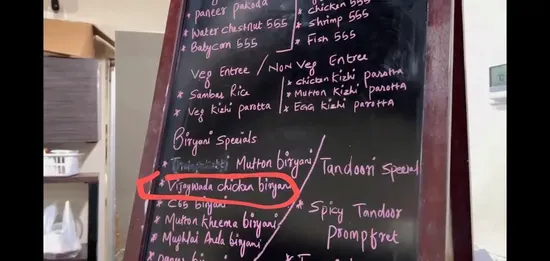 paneer pakoda
* Water chestnut 555
* Babycorn 555
* chicken 555
* shrimp 555
* Fish 555
Veg Entree / Non Veg Entree
* Sambar Rice
* Veg Kizhi parotta
* chicken Kizhi parotta
* Mutton Kizhi parotta
* EGG Kizhi parotta
Biryani Specials
* Mutton biryani
* Vijaywada chicken biryani
* C65 biryani
* Mutton Kheema biryani
* Mughlai Anda biryani
biryani
Tandoori Special
* Spicy Tandoor
Prompfret